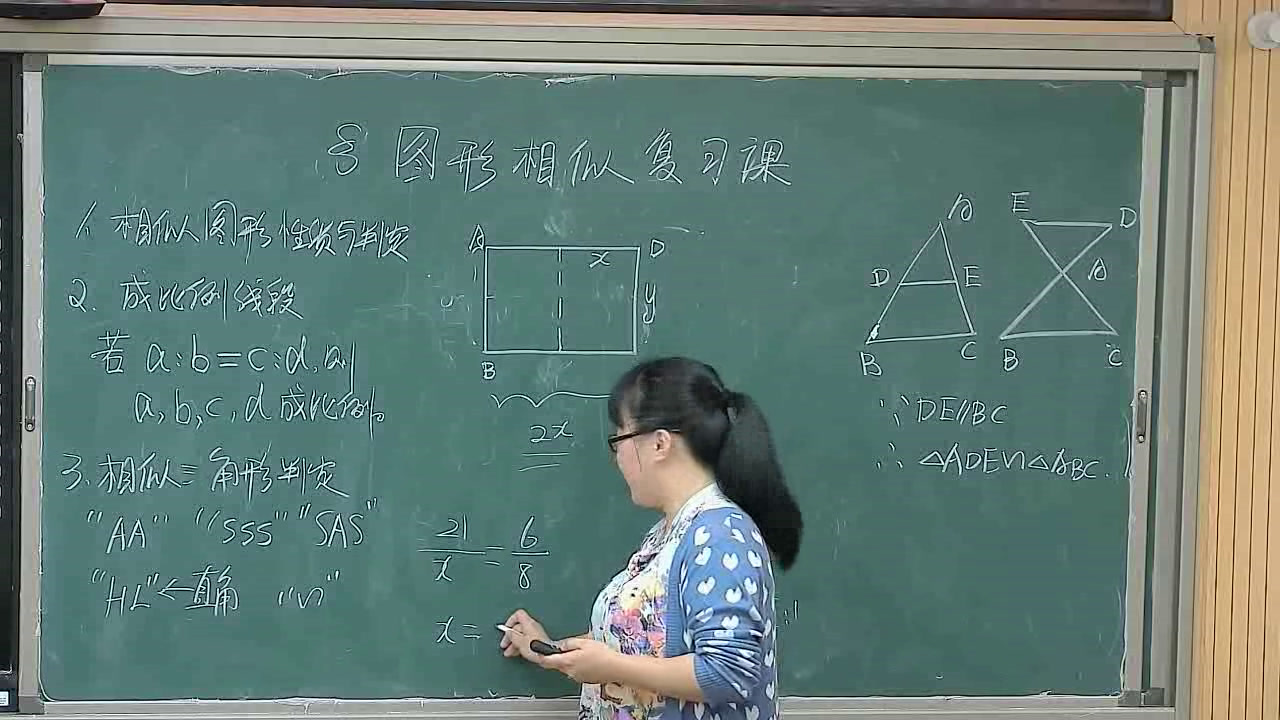 § 图形相似复习课
1. 相似图形性质与判定
2. 成比例线段
若 a:b=c:d,则
a,b,c,d成比例。
3. 相似三角形判定
"AA" "SSS" "SAS"
"HL"←直角 "∽"
A D
x
y y
B
2x
21/x = 6/8
x=
A E D
D E A
B C B C
∵ DE∥BC
∴ △ADE∽△ABC.